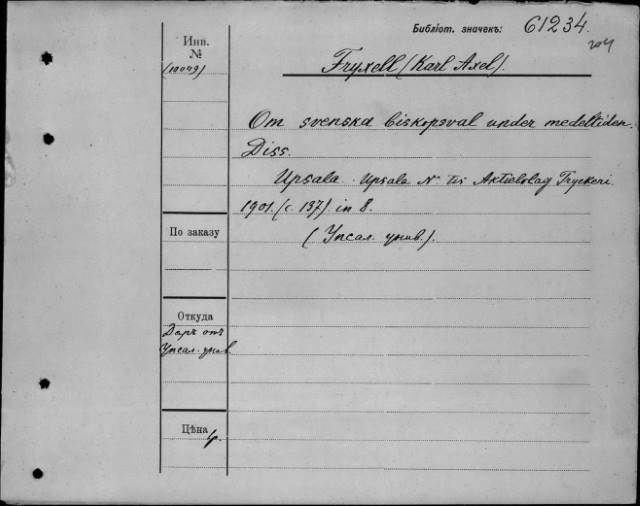 Библіот. значекъ: 61234
204
Инв.
№
(10049)
Fryxell (Karl Axel).
Om svenska biskopsval under medeltiden.
Diss.
Upsala. Upsala N. Tis Aktiebolag Tryckeri
1901. (с. 137). in 8.
(Упсал. унив.).
По заказу
Откуда
Даръ отъ
Упсал. унив.
Цѣна